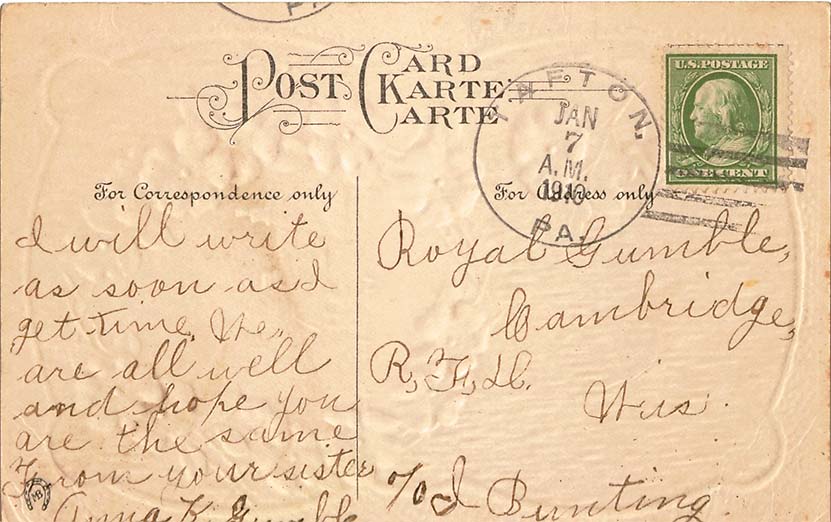 PA
POST CARD
KARTE
CARTE
TAFTON,
JAN
7
A.M.
1910
PA.
U.S. POSTAGE
ONE CENT
For Correspondence only
For Address only
I will write
as soon as I
get time. We
are all well
and hope you
are the same
From your sister
Anna K. Gumble
Royal Gumble,
Cambridge,
R.F.D.
Wis.
c/o I Bunting
MB